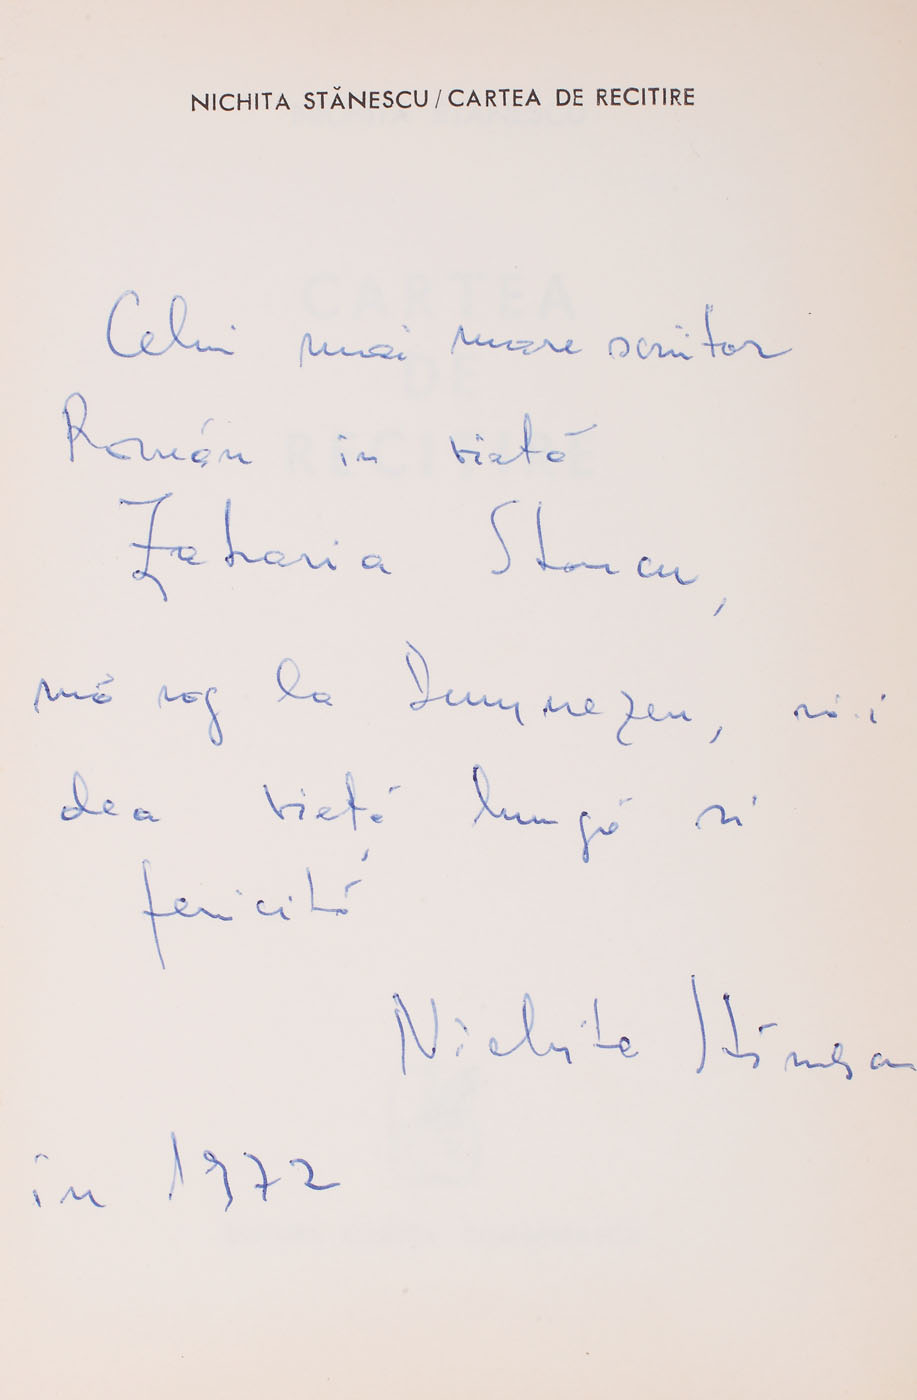 NICHITA STĂNESCU / CARTEA DE RECITIRE
Celui mai mare scriitor
Român în viață
Zaharia Stancu,
mă rog la Dumnezeu, să-i
dea viață lungă și
fericită
Nichita Stănescu
în 1972